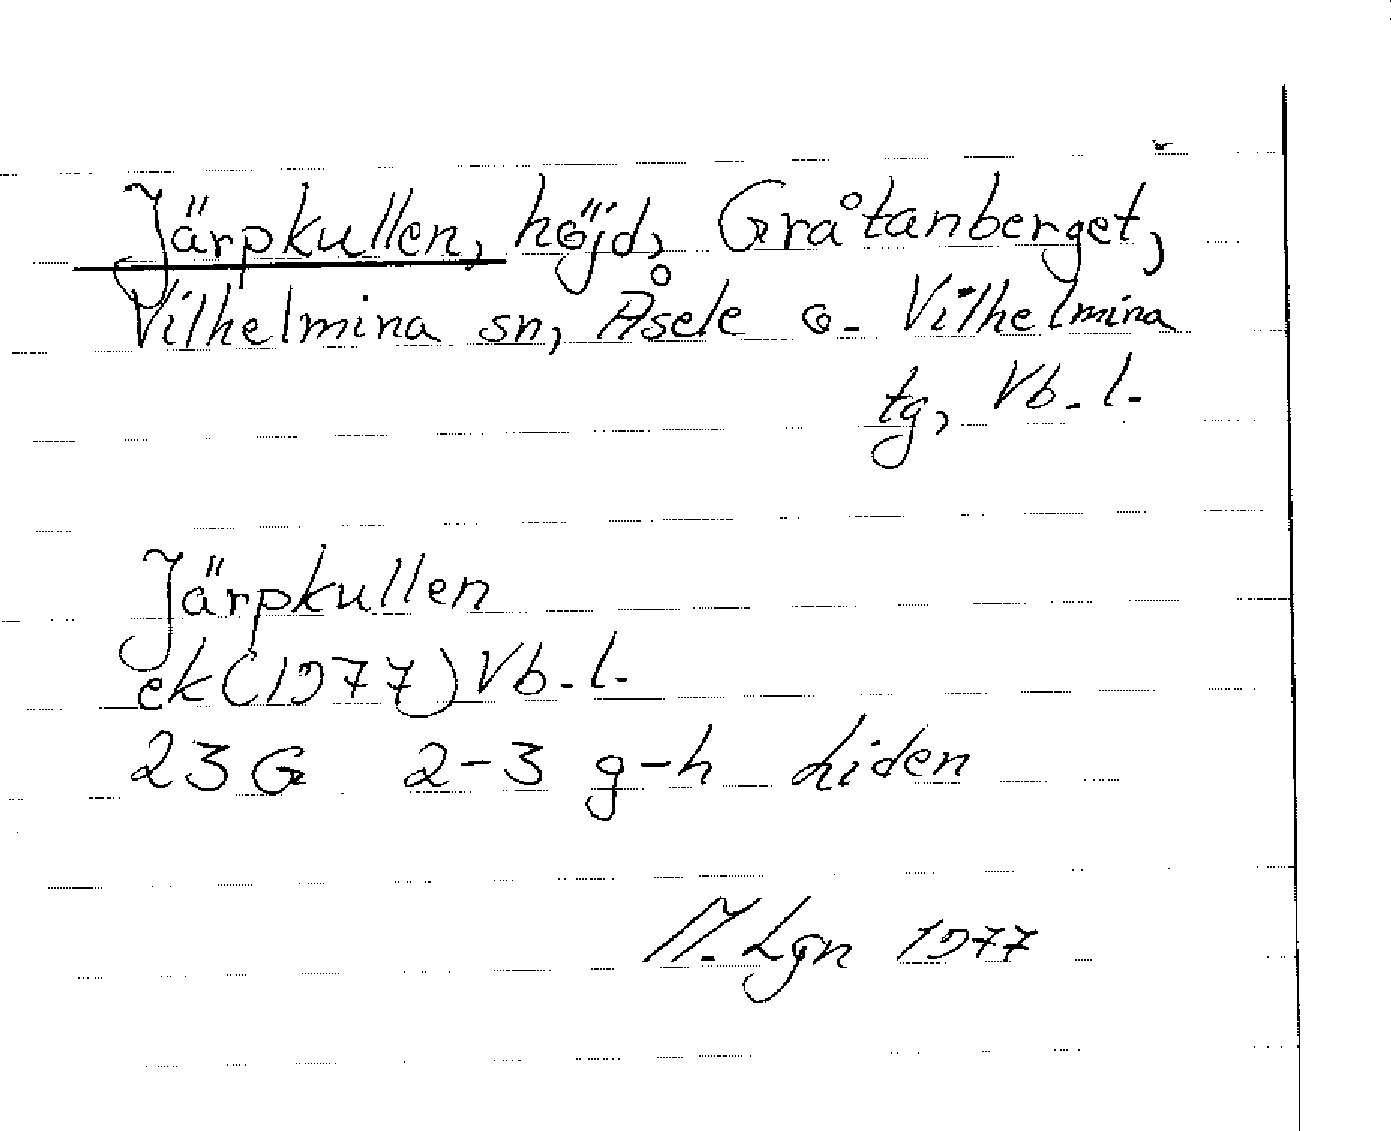 Järpkullen, höjd, Gråtanberget,
Vilhelmina sn, Åsele o. Vilhelmina
tg, Vb. l.
Järpkullen
ek(1977) Vb. l.
23 G 2-3 g-h Liden
M. Lgn 1977